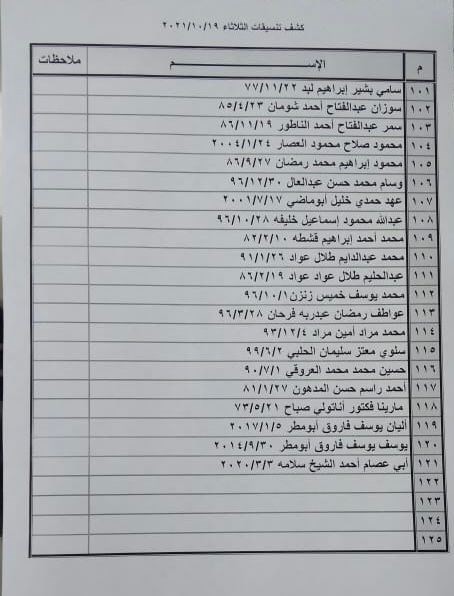 كشف تنسيقات الثلاثاء ٢٠٢١/١٠/١٩
م الإســـم ملاحظات
١٠١ سامي بشير إبراهيم لبد ٧٧/١١/٢٢
١٠٢ سوزان عبدالفتاح أحمد شومان ٨٥/٤/٢٣
١٠٣ سمر عبدالفتاح أحمد الناطور ٨٦/١١/١٩
١٠٤ محمود صلاح محمود العصار ٢٠٠٤/١/٢٤
١٠٥ محمود إبراهيم محمد رمضان ٨٦/٩/٢٧
١٠٦ وسام محمد حسن عبدالعال ٩٦/١٢/٣٠
١٠٧ عهد حمدي خليل أبوماضي ٢٠٠١/٧/١٧
١٠٨ عبدالله محمود إسماعيل خليفه ٩٦/١٠/٢٨
١٠٩ محمد أحمد إبراهيم قشطه ٨٢/٢/١٠
١١٠ محمد عبدالدايم طلال عواد ٩١/١/٢٦
١١١ عبدالحليم طلال عواد عواد ٨٦/٢/١٩
١١٢ محمد يوسف خميس زنزن ٩٦/١٠/١
١١٣ عواطف رمضان عبدربه فرحان ٩٦/٣/٢٨
١١٤ محمد مراد أمين مراد ٩٣/١٢/٤
١١٥ سلوي معتز سليمان الحلبي ٩٩/٦/٢
١١٦ حسين محمد محمد العروقي ٩٠/٧/١
١١٧ أحمد راسم حسن المدهون ٨١/١/٢٧
١١٨ مارينا فكتور أناتولي صباح ٧٣/٥/٢١
١١٩ أليان يوسف فاروق أبومطر ٢٠١٧/١/٥
١٢٠ يوسف يوسف فاروق أبومطر ٢٠١٤/٩/٣٠
١٢١ أبي عصام أحمد الشيخ سلامه ٢٠٢٠/٣/٣
١٢٢
١٢٣
١٢٤
١٢٥